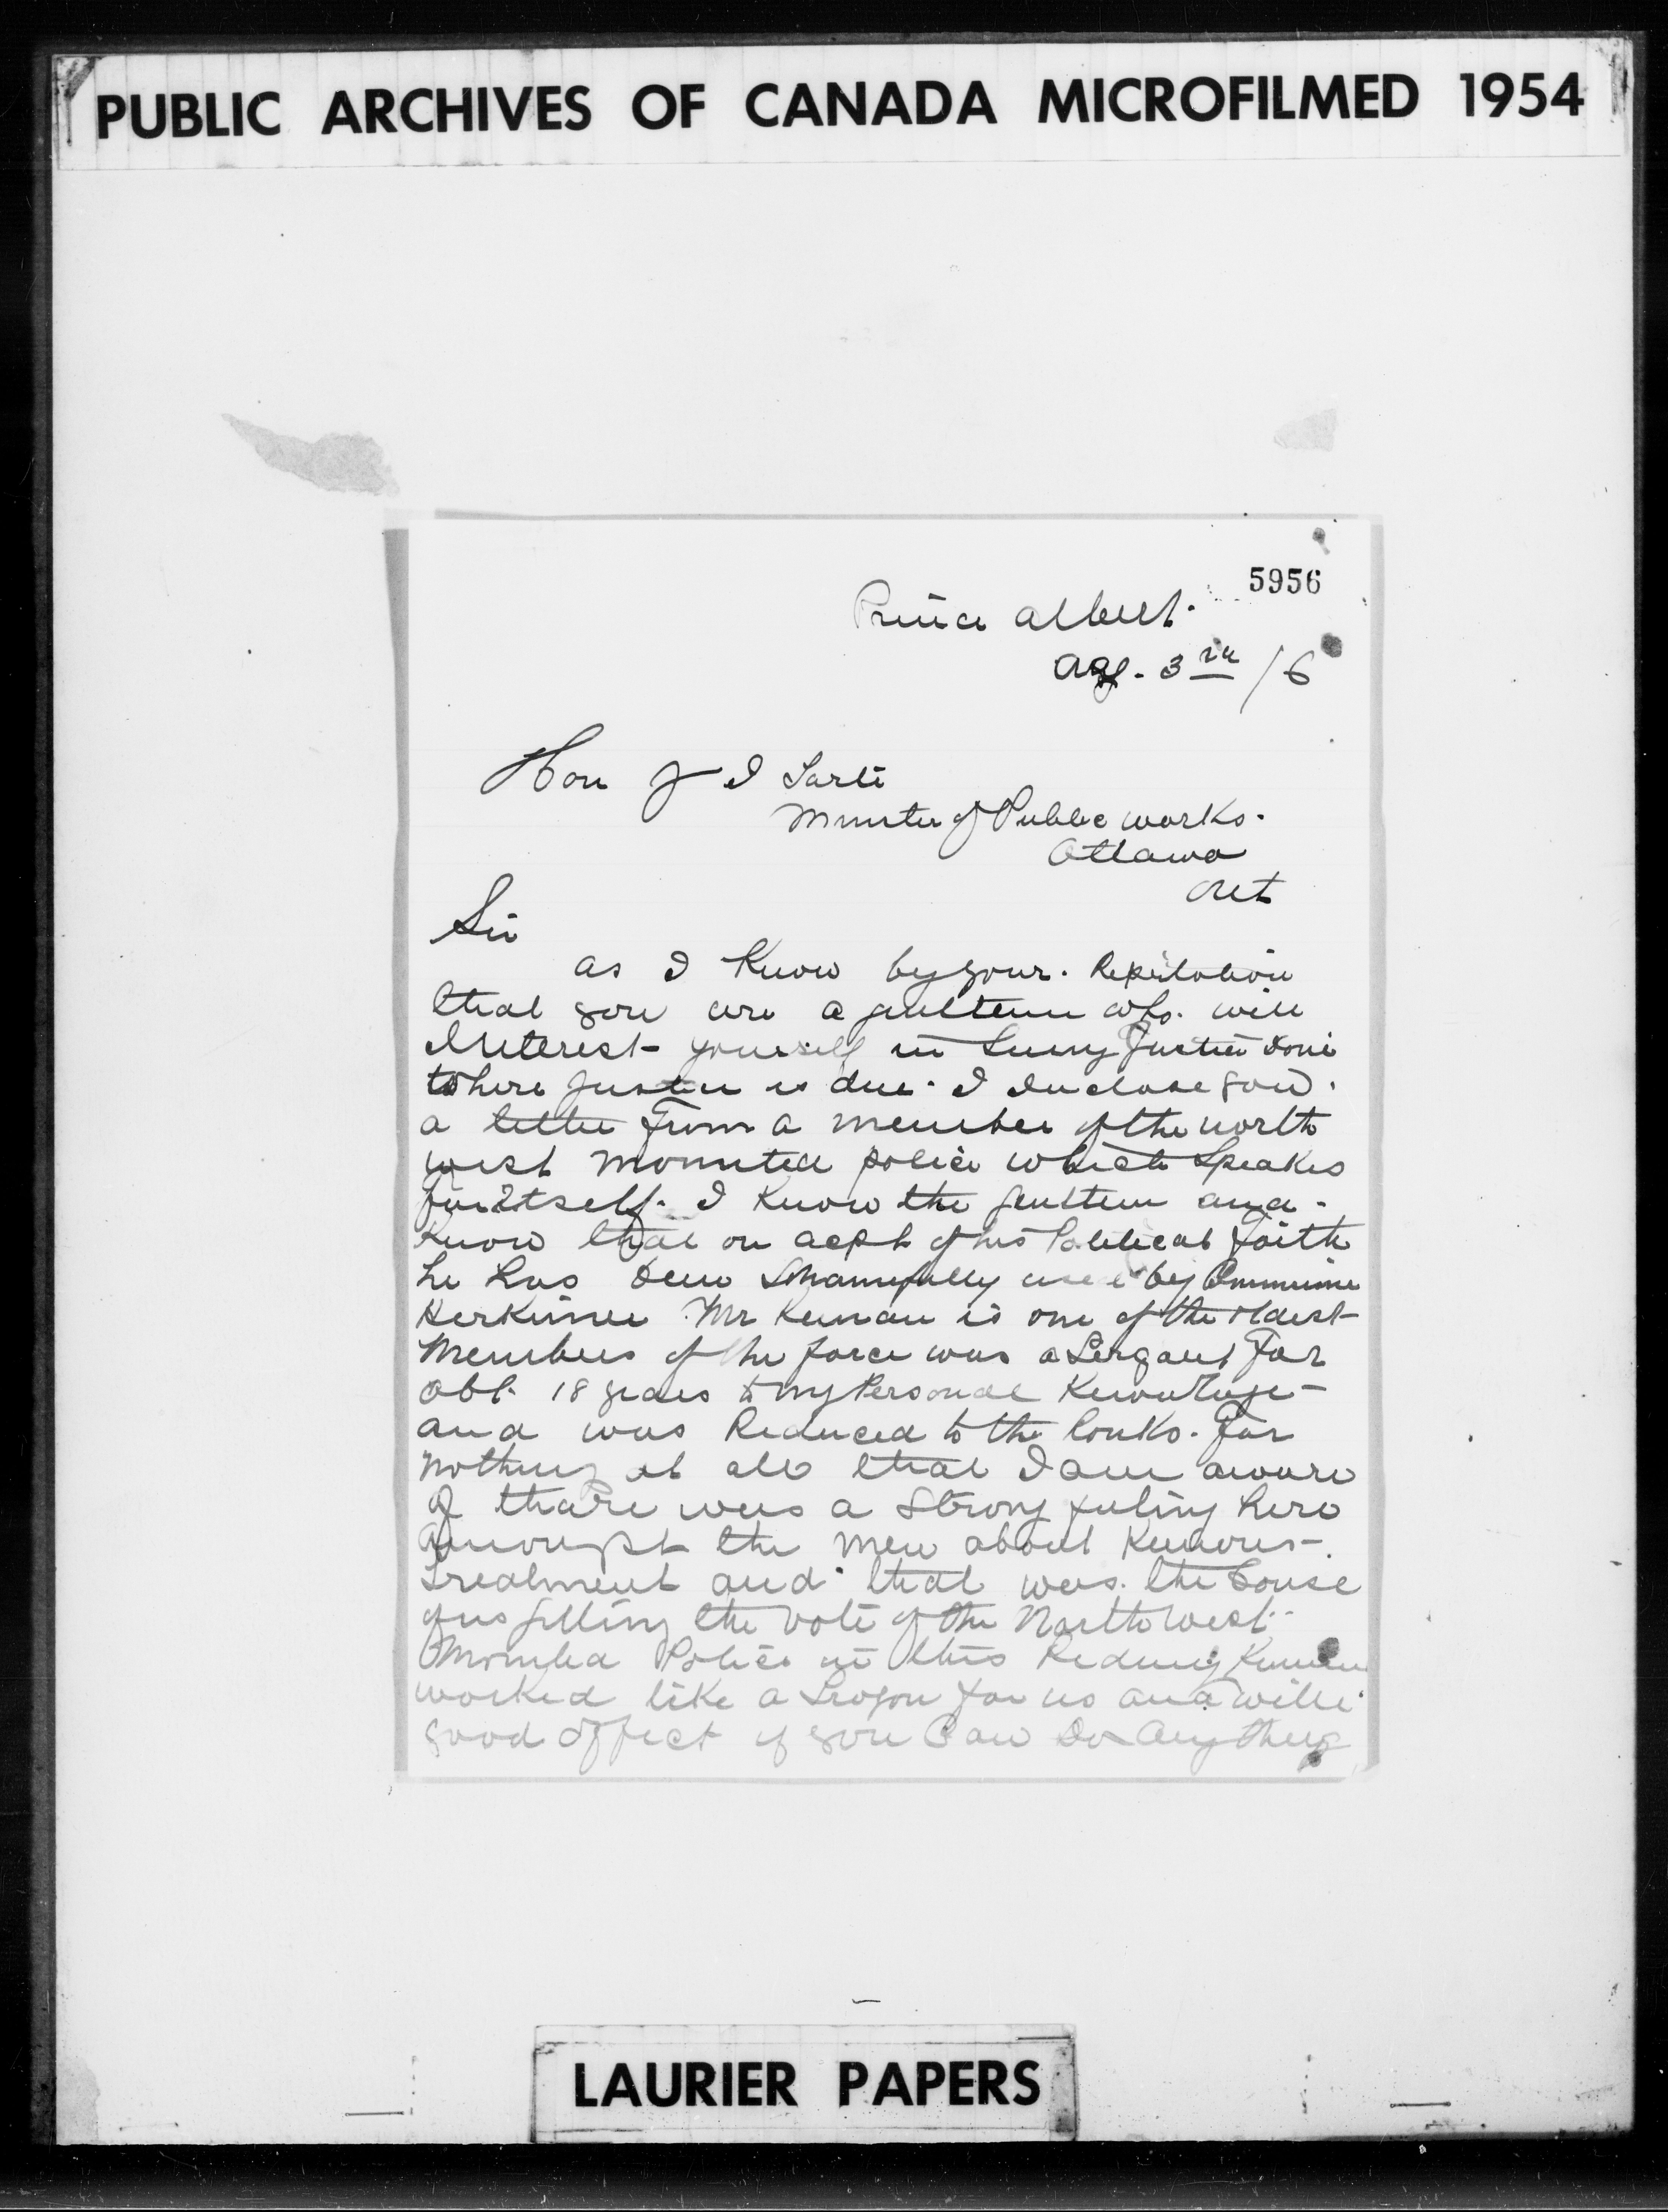 PUBLIC ARCHIVES OF CANADA MICROFILMED 1954
5956
Prince Albert.
Aug. 3rd /6
Hon J I Tarte
Minister of Public works.
Ottawa
Ont
Sir
as I Know by your. Reputation
that you are a gentlemn who. will
Interest yourself in Seeing Justice done
where Justice is due. I Inclose you.
a letter From a member of the north
west mounted police which Speakes
for itself. I Know the gentlemn and.
Know that on acpt of his Political Faith
he has been Shamefully used by
Mr is one of the oldest
Members of the force was a Sergant For
abt. 18 years to my Personal Knowledge
and was Reduced to the Ranks. For
nothing at all that I am aware
of thaire was a Strong feeling here
amongst the men about
Treatment and that was. the Couse
of us getting the vote of the North West
Mounted Police in this Rideing
worked like a Trogon for us and with
good effect if you Can Do Any thing
LAURIER PAPERS